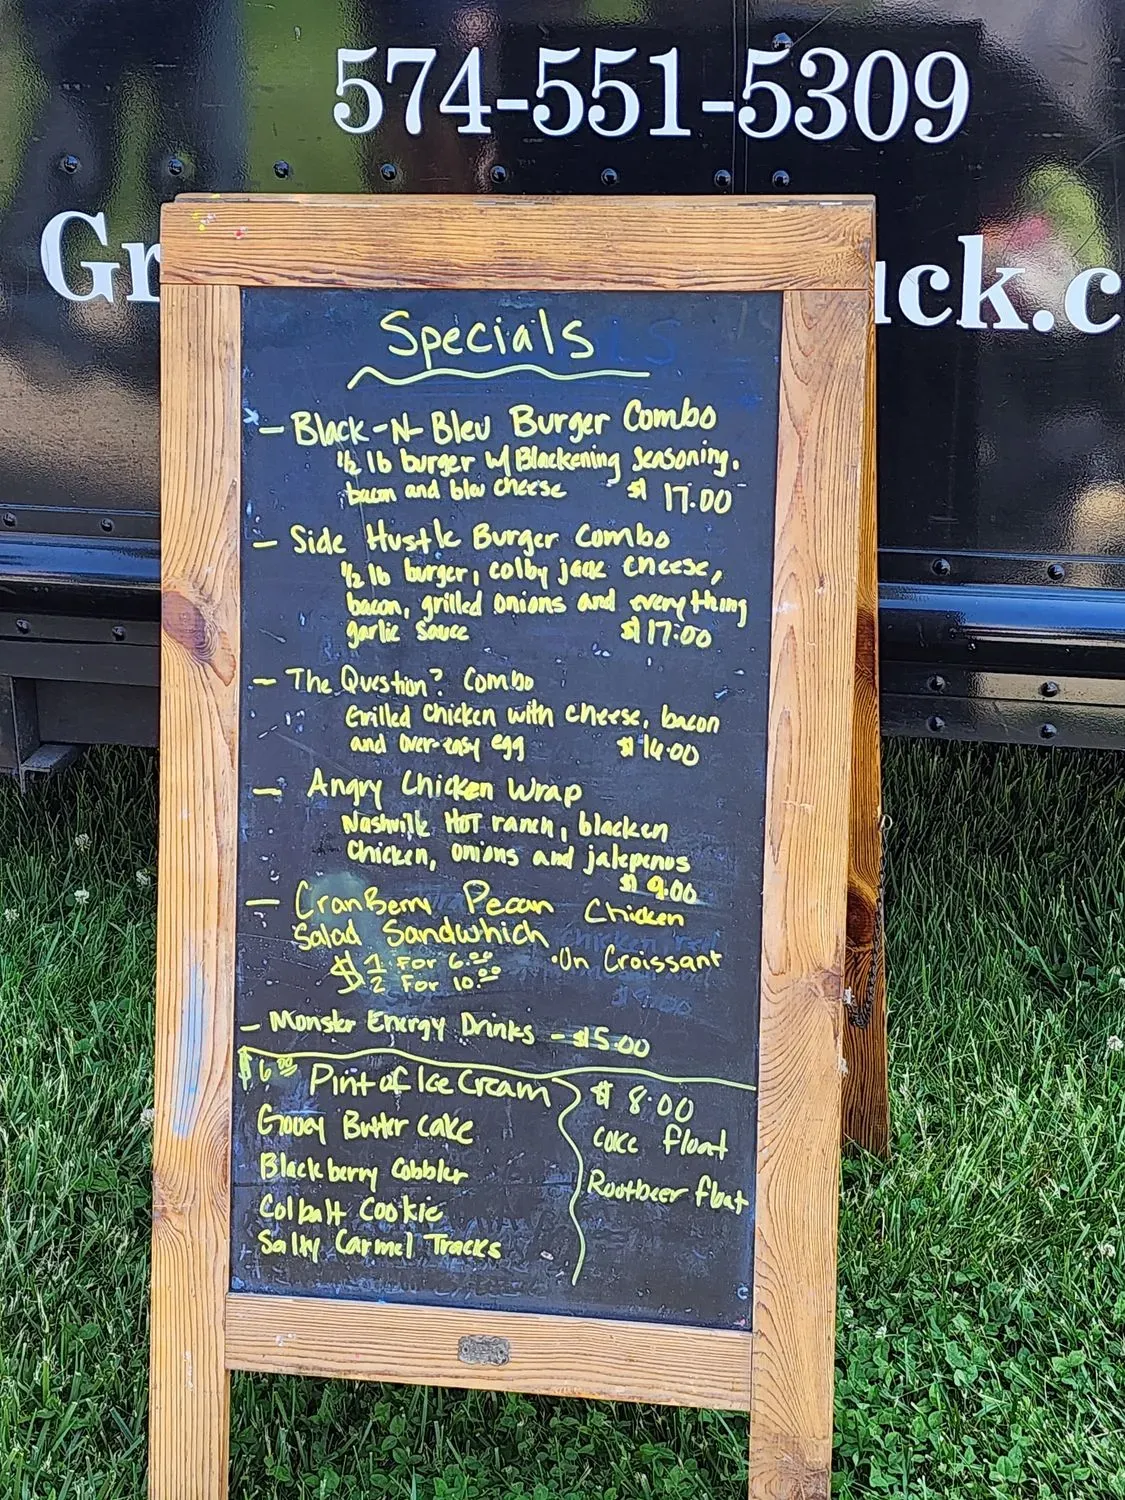 574-551-5309
Gr uck.c
Specials
- Black-N-Bleu Burger Combo
1/2 lb burger w/Blackening seasoning.
bacon and bleu cheese $17.00
- Side Hustle Burger Combo
1/2 lb burger, colby jack cheese,
bacon, grilled onions and everything
garlic sauce $17.00
- The Question? Combo
Grilled chicken with cheese, bacon
and over-easy egg $14.00
- Angry Chicken Wrap
Nashville HOT ranch, blacken
chicken, onions and jalepenos
$9.00
- CranBerry Pecan Chicken
Salad Sandwhich
$ 1 For 6.00 •On Croissant
2 For 10.00
- Monster Energy Drinks - $5.00
$6.00 Pint of Ice Cream
Gooey Butter cake
Blackberry Cobbler
Colbalt Cookie
Salty Carmel Tracks
$8.00
coke float
Rootbeer float